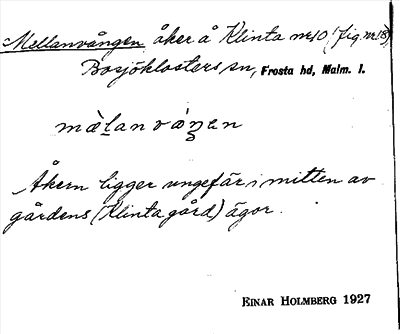 Mellanvången åker å Klinta nr 10 (fig. nr 18)
Bosjöklosters sn, Frosta hd, Malm. l.
Åkern ligger ungefär i mitten av
gårdens (Klinta gård) ägor.
EINAR HOLMBERG 1927